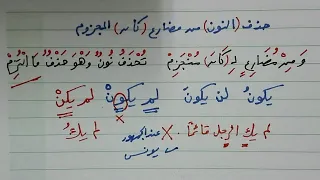 حذف (النون) من مضارع (كان) المجزوم
وَمِنْ مُضَارِعٍ لِـ(كَانَ) مُنْجَزِمْ تُحْذَفُ نُونٌ وَهْوَ حَذْفٌ مَا الْتُزِمْ
يكونُ لن يكونَ لم يكوْنْ لم يكنْ
لم يكِ الرجل قائمًا X عند الجمهور X لم يكُ
يونس